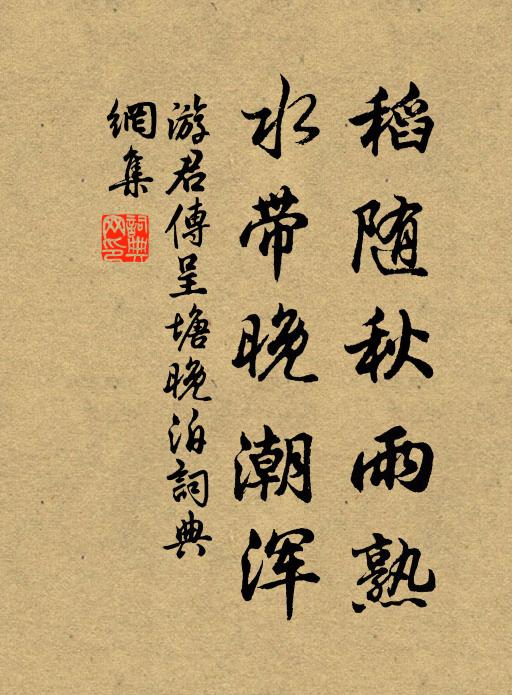 稻随秋雨熟
水带晚潮浑
游君傳呈塘晚泊詞典
網集
詞典网印